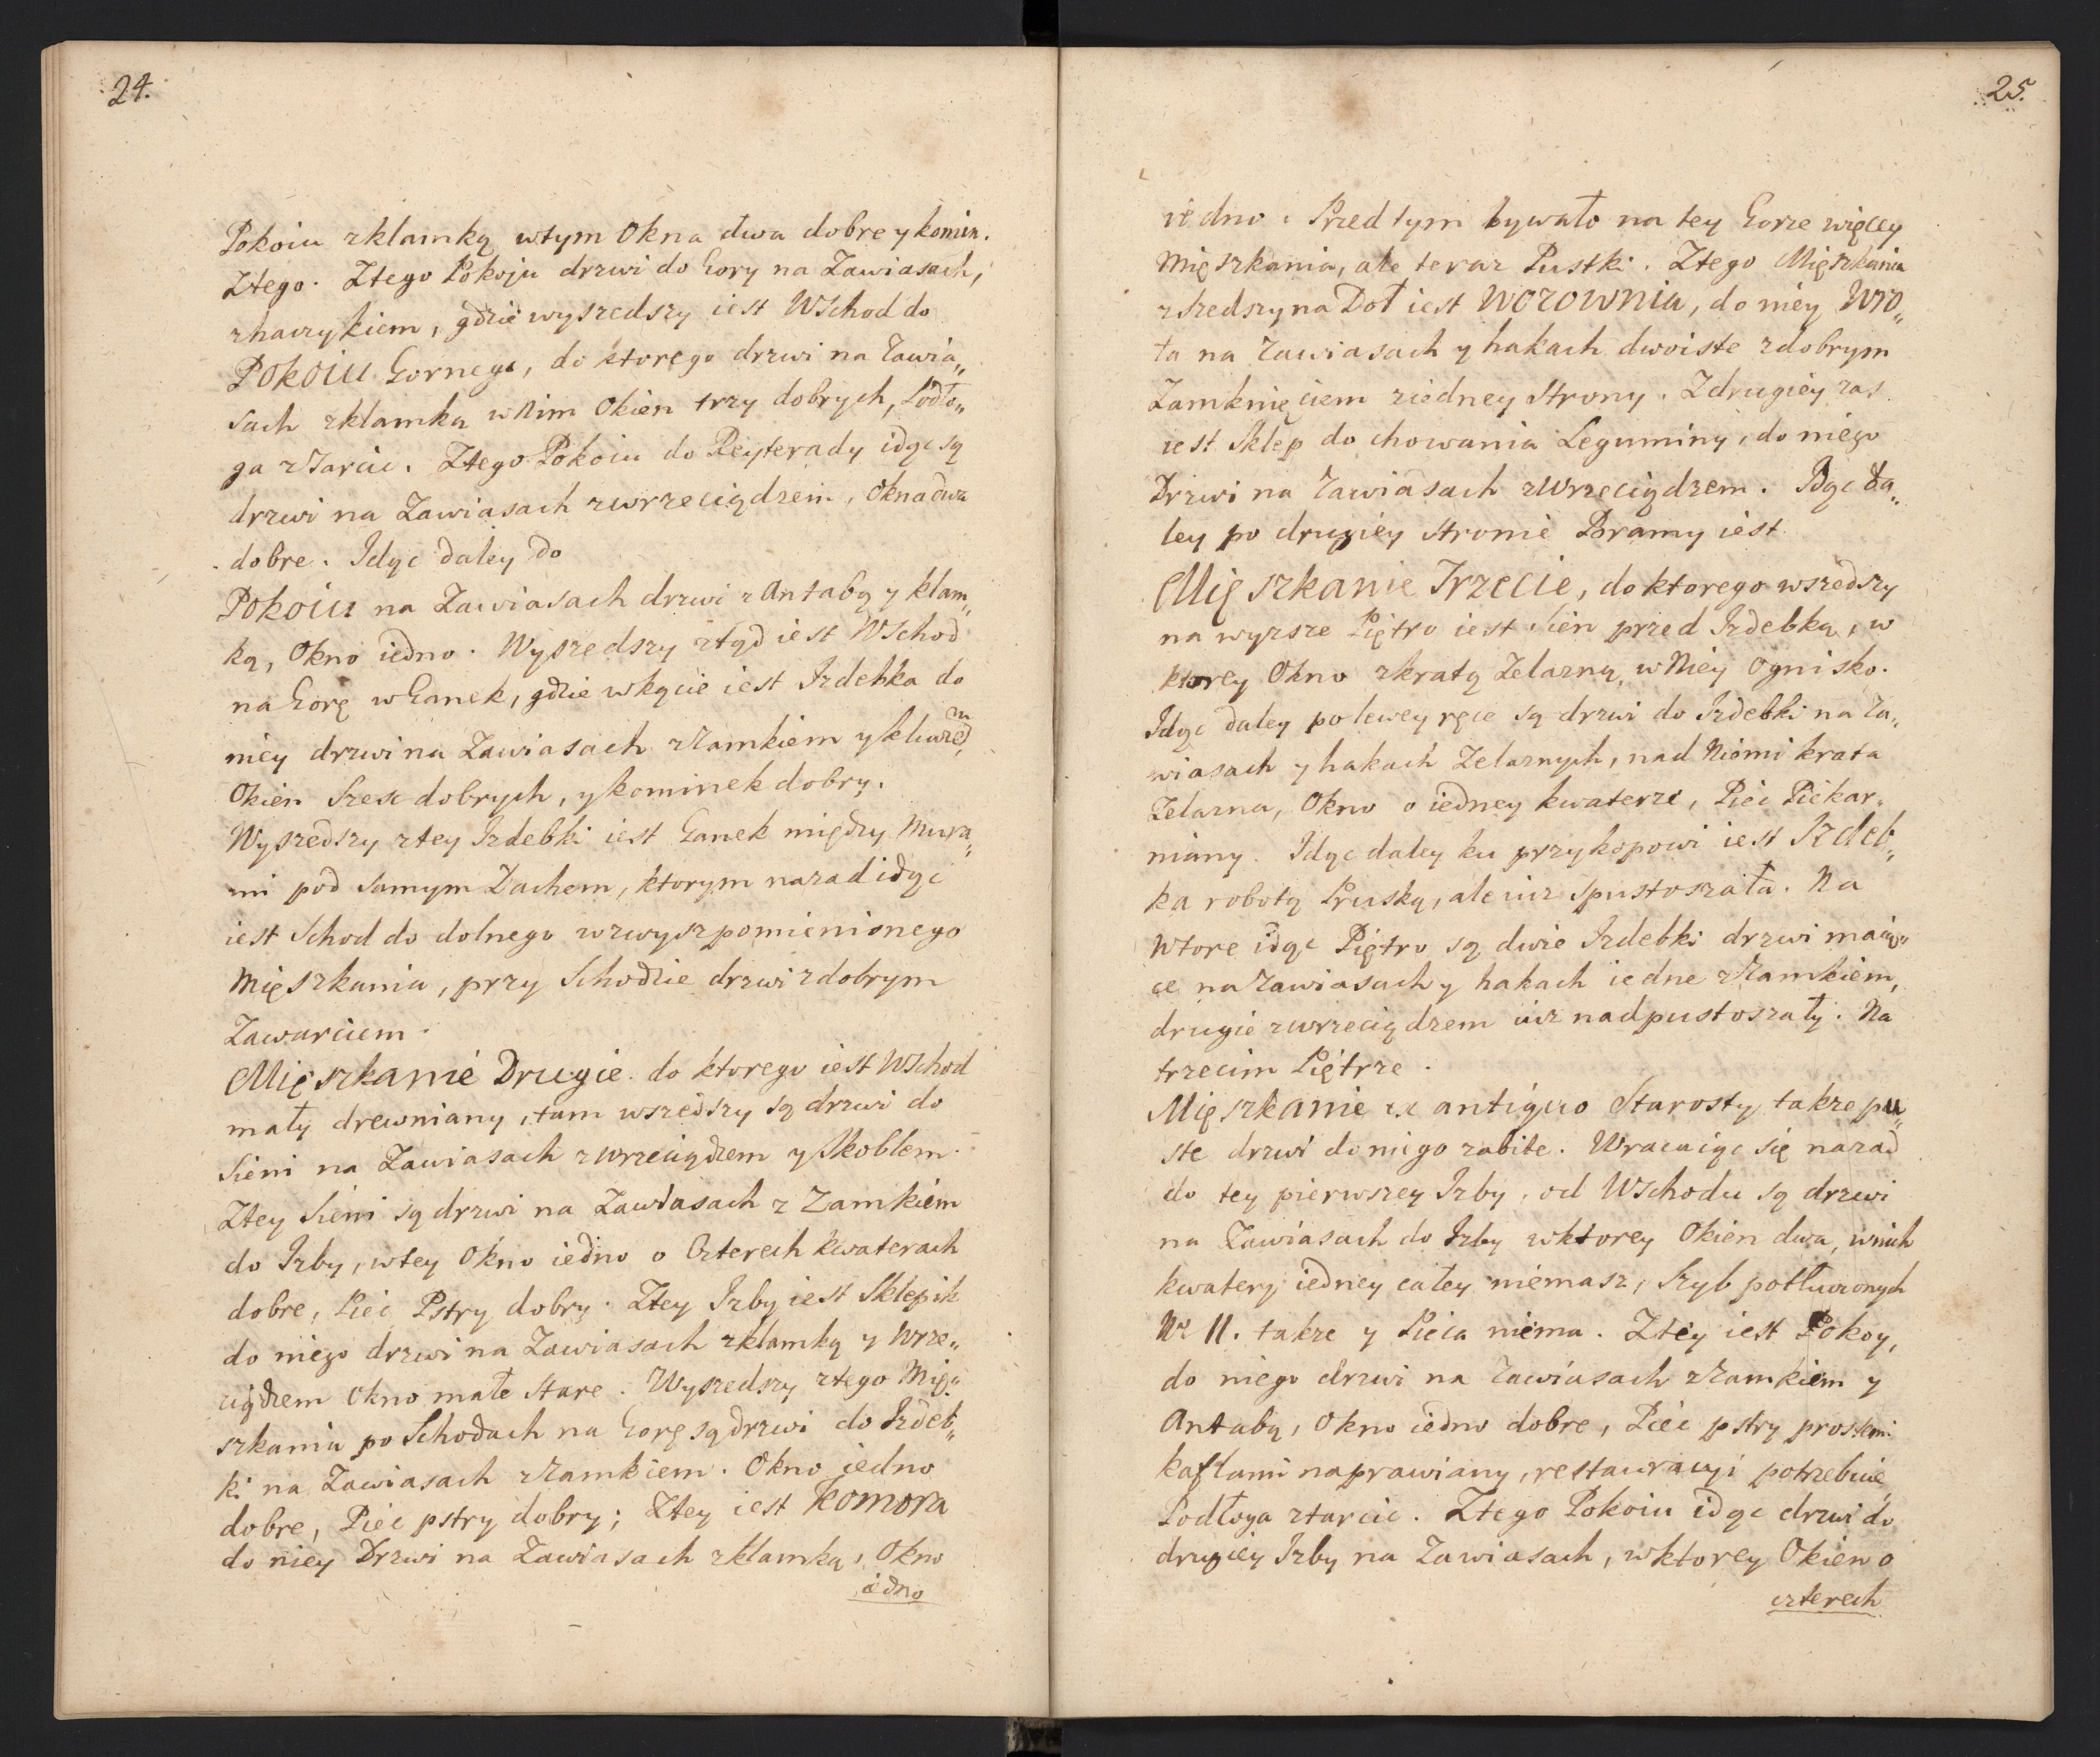 24.
Pokoiu zklamką wtym Okna dwa dobre y komin.
Ztego. Ztego Pokoju drzwi do Gory na Zawiasach,
zhaczykiem, gdzie wyszedszy iest WSchod do
Pokoiu Gornego, do ktorego drzwi na Zawia„
sach zklamką wNim Okien trzy dobrych, Podło„
ga zTarcic. Ztego Pokoiu do Reyterady idąc są
drzwi na Zawiasach zwrzeciądzem, Okna dwa
dobre. Idąc daley do
Pokoiu na Zawiasach drzwi z Antabą y klam„
ką, Okno iedno. Wyszedszy ztąd iest WSchod
na Gorę w Ganek, gdzie wkącie iest Izdebka do
niey drzwi na Zawiasach zZamkiem y kluczem,
Okien Szesc dobrych, y kominek dobry.
Wyszedszy ztey Izdebki iest Ganek między Mura„
mi pod samym Dachem, ktorym nazad idąc
iest Schod do dolnego wzwyszpomienionego
Mięszkania, przy Schodzie drzwi zdobrym
Zawarciem.
Mięszkanie Drugie. do ktorego iest WSchod
mały drewniany, tam wszedszy są drzwi do
Sieni na Zawiasach zwrzeciądzem y Skoblem.
Ztey Sieni są drzwi na Zawiasach z Zamkiem
do Izby, wtey Okno iedno o Czterech kwaterach
dobre, Piec Pstry dobry. Ztey Izby iest Sklepik
do niego drzwi na Zawiasach zklamką y Wrze„
ciądzem Okno małe stare. Wyszedszy ztego Mię„
szkania po Schodach na Gorę są drzwi do Izdeb„
ki na Zawiasach zZamkiem. Okno iedno
dobre, Piec pstry dobry; Ztey iest Komora
do niey Drzwi na Zawiasach zklamką, Okno
iedno
25.
iedno. Przed tym bywało na tey Gorze więcey
Mięszkania, ale teraz Pustki. Ztego Mięszkania
zszedszy na Doł iest Wozownia, do niey Wro„
ta na Zawiasach y hakach dwoiste zdobrym
Zamknięciem ziedney Strony. Zdrugiey zas
iest Sklep do chowania Leguminy, do niego
Drzwi na Zawiasach zWrzeciądzem. Idąc da„
ley po drugiey stronie Bramy iest
Mięszkanie Trzecie, do ktorego wszedszy
na wyzsze Piętro iest Sien przed Izdebką, w
ktorey Okno zkratą Zelazną, w Niey Ognisko.
Idąc daley po lewey ręce są drzwi do Izdebki na Za„
wiasach y hakach Zelaznych, nad Niemi krata
Zelazna, Okno o iedney kwaterze, Piec Piekar„
niany. Idąc daley ku przykopowi iest Izdeb„
ka robotą Pruską, ale iuz spustoszała. Na
Wtore idąc Piętro są dwie Izdebki drzwi maią„
ce na Zawiasach y hakach iedne zZamkiem,
drugie zwrzeciądzem iuz nadpustoszały. Na
trzecim Piętrze.
Mięszkanie ex antiquo Starosty takze pu„
ste drzwi do niego zabite. Wracaiąc się nazad
do tey pierwszey Izby, od WSchodu są drzwi
na Zawiasach do Izby wktorey Okien dwa, wnich
kwatery iedney całey niemasz, Szyb potłuczonych
Nº 11. takze y Pieca niema. Ztey iest Pokoy,
do niego drzwi na Zawiasach zZamkiem y
Antabą, Okno iedno dobre, Piec pstry prostemi
kaflami naprawiany, restauracyi potrzebuie,
Podłoga ztarcic. Ztego Pokoiu idąc drzwi do
drugiey Izby na Zawiasach, wktorey Okien o
czterech